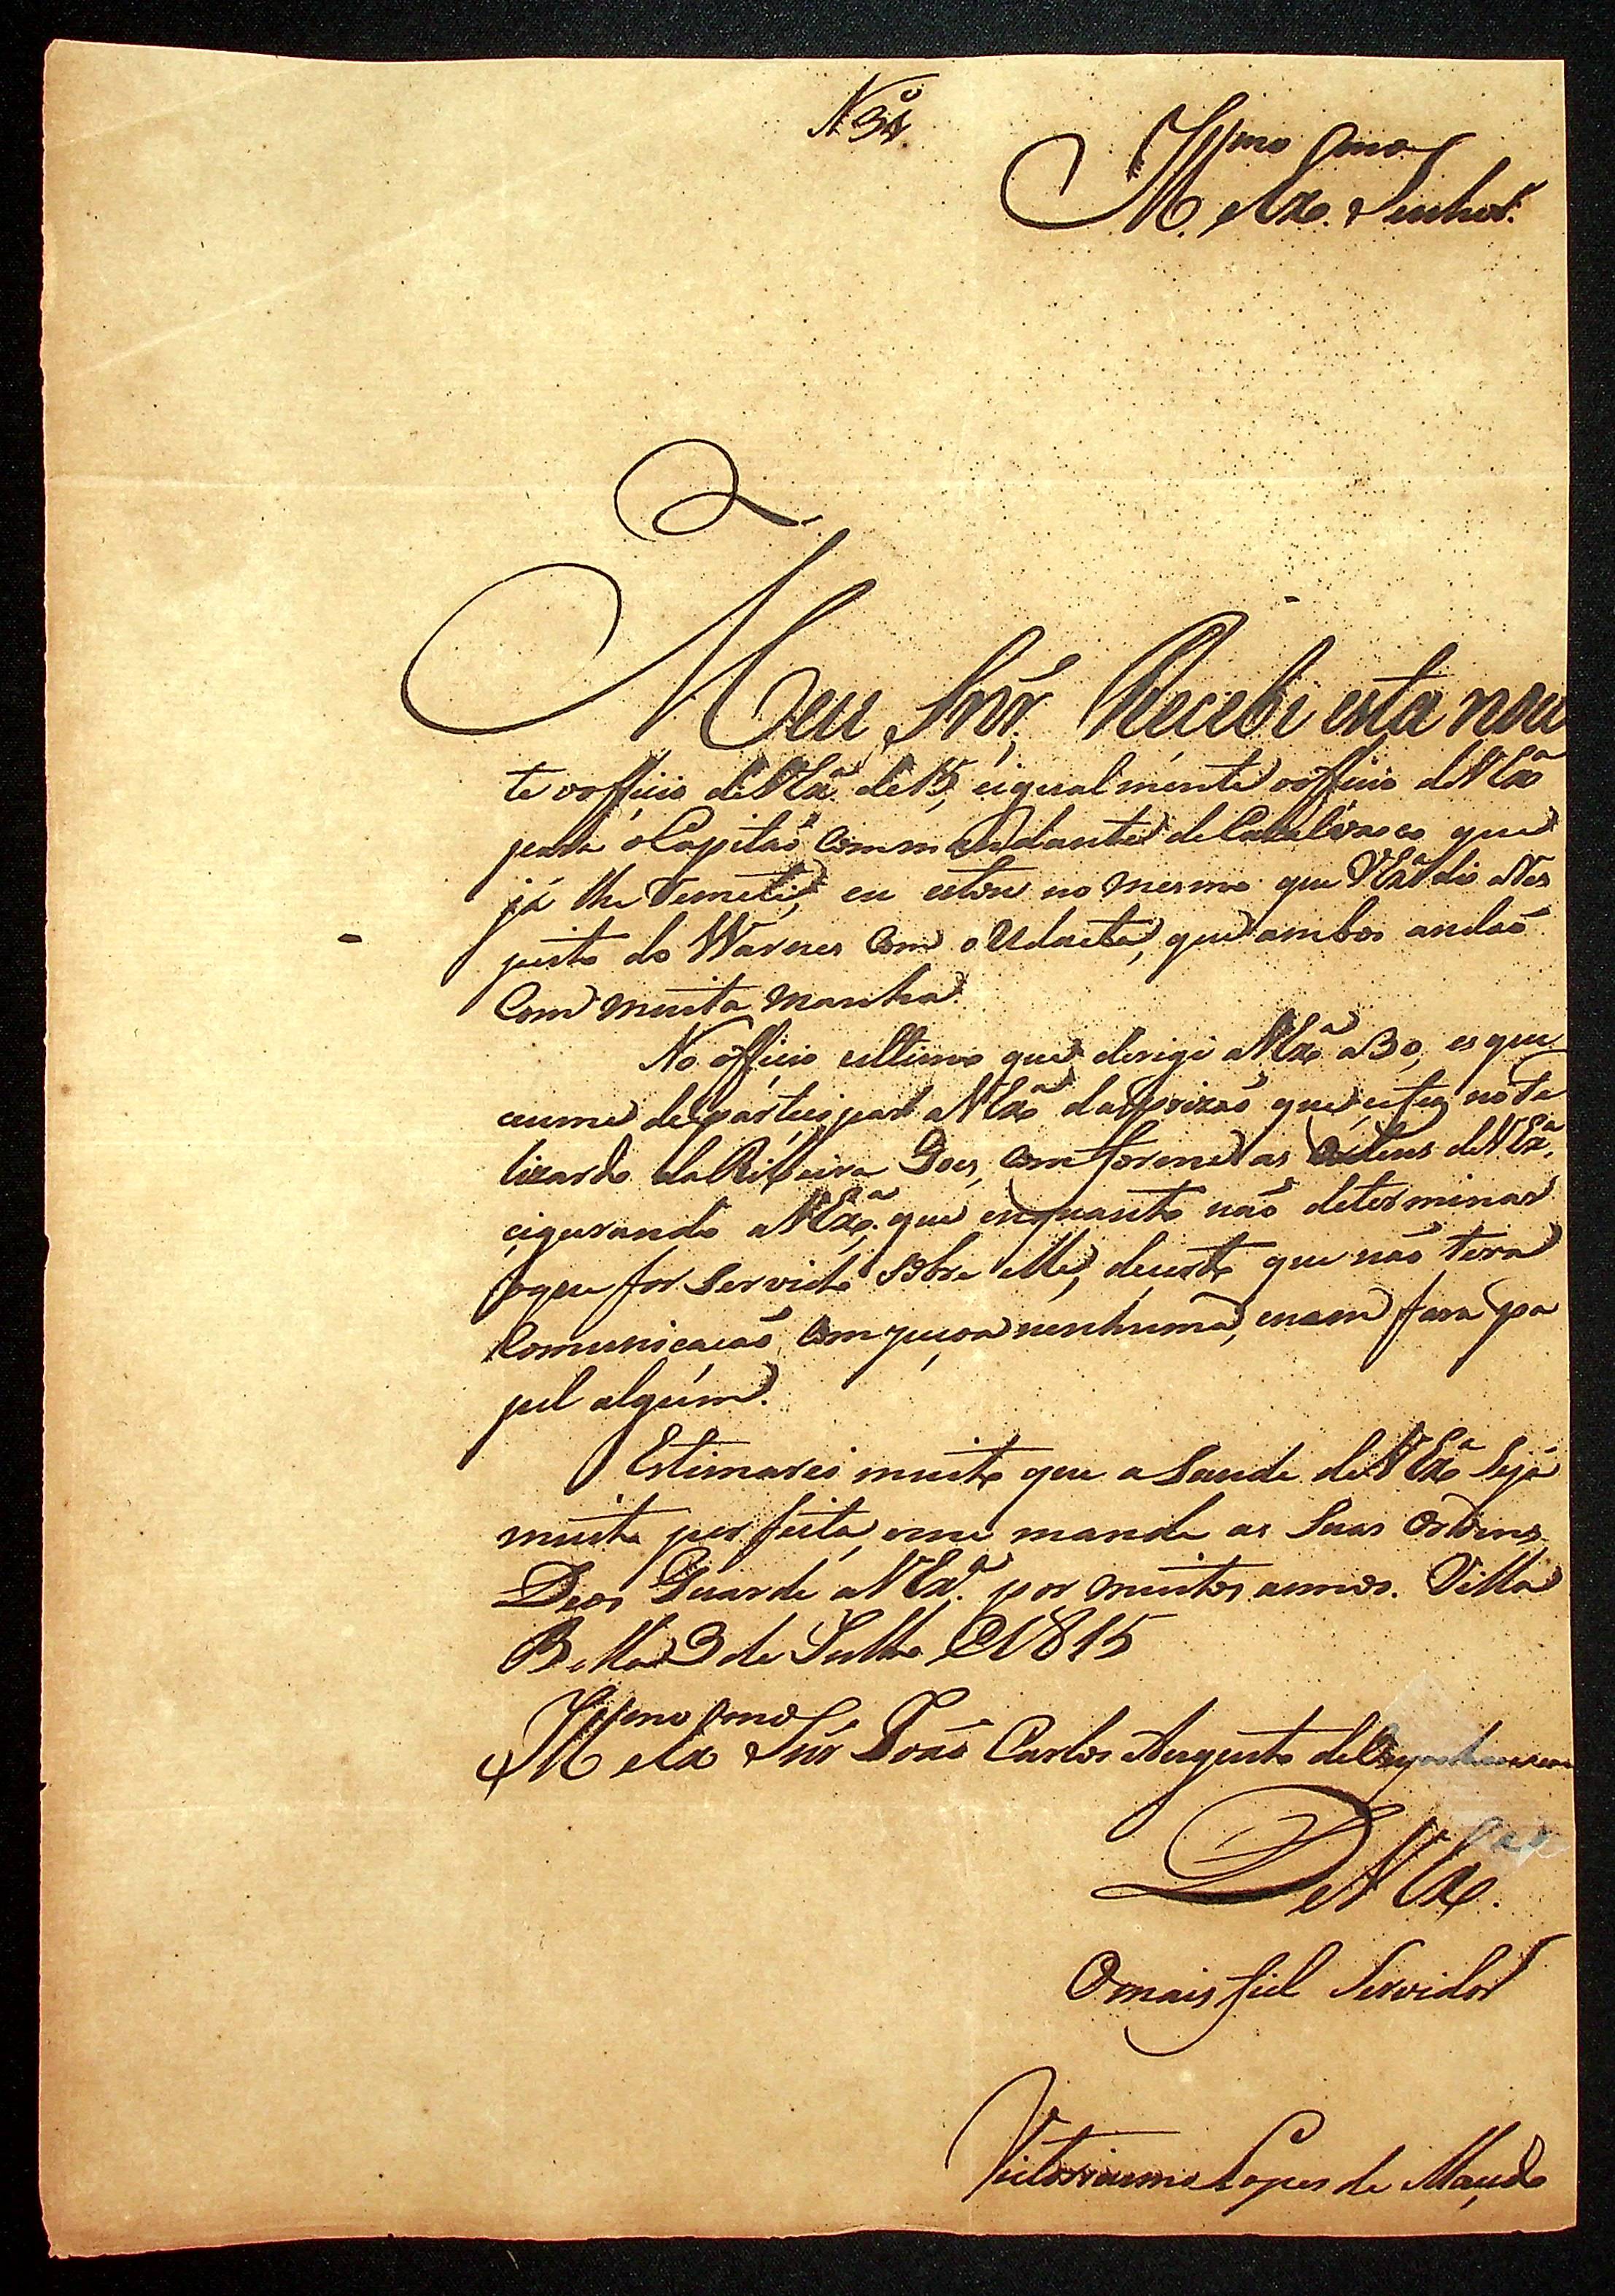 N.º 34
Ill.mo Emo
M. e Ex. Senhor.
Meu Snr. Recebi esta nou
te o officio de VExª de 15, e igualmente o officio de VExª
para o Capitaõ Commandante de Casalvasco que
já lhe remeti, eu estou no mesmo que VExª diz Res
peito do Warnes com o Udaeta, que ambos andaõ
Com muita manha.
No officio ultimo que derigi a VExª a 30, esque
ceume de participar a VExª da prizaõ que se fez no Fe
lizardo da Ribeira Goes, comforme as Ordens de VExª,
cigurando a VExª, que enquanto naõ determinar
o que for Servido sobre elle, deicerto que naõ tera
Comunicacaõ com pecoa nenhuma, e nem fara pa
pel algum.
Estimarei muito que a Saude de VExª Seja
muito perfeita, e me mande as Suas Ordens.
Deos Guarde a VExª por muitos annos. Villa
Bella 3 de Julho de 1815
Ill.mo Emo
M e Ex Snr Joaõ Carlos Augusto de Oeynhausen
De VEx.
O mais fiel Servidor
Victorianno Lopes de Macedo